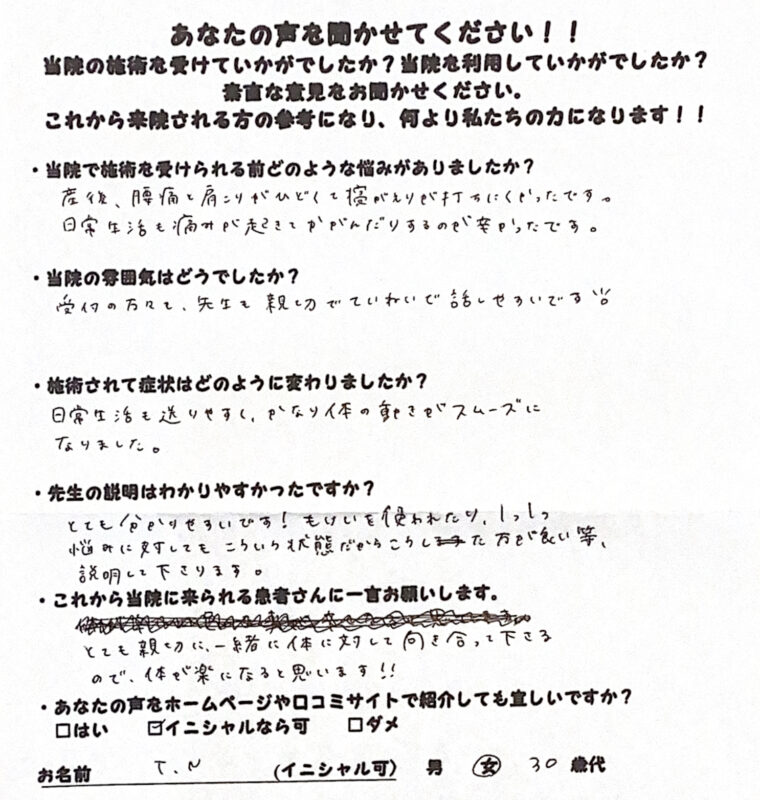 あなたの声を聞かせてください！！
当院の施術を受けていかがでしたか？当院を利用していかがでしたか？
素直な意見をお聞かせください。
これから来院される方の参考になり、何より私たちの力になります！！
・当院で施術を受けられる前どのような悩みがありましたか？
産後、腰痛と肩こりがひどくて寝がえりが打ちにくかったです。
日常生活も痛みが起きてかがんだりするのが辛かったです。
・当院の雰囲気はどうでしたか？
受付の方々も、先生も親切でていねいで話しやすいです
・施術されて症状はどのように変わりましたか？
日常生活も送りやすく、かなり体の動きがスムーズに
なりました。
・先生の説明はわかりやすかったですか？
とても分かりやすいです！もけいを使われたり、1つ1つ
悩みに対してもこういう状態だからこうした方が良い等、
説明して下さります。
・これから当院に来られる患者さんに一言お願いします。
とても親切に、一緒に体に対して向き合って下さる
ので、体が楽になると思います!!
・あなたの声をホームページや口コミサイトで紹介しても宜しいですか？
□はい ☑イニシャルなら可 □ダメ
お名前 T.N (イニシャル可) 男 女 30 歳代